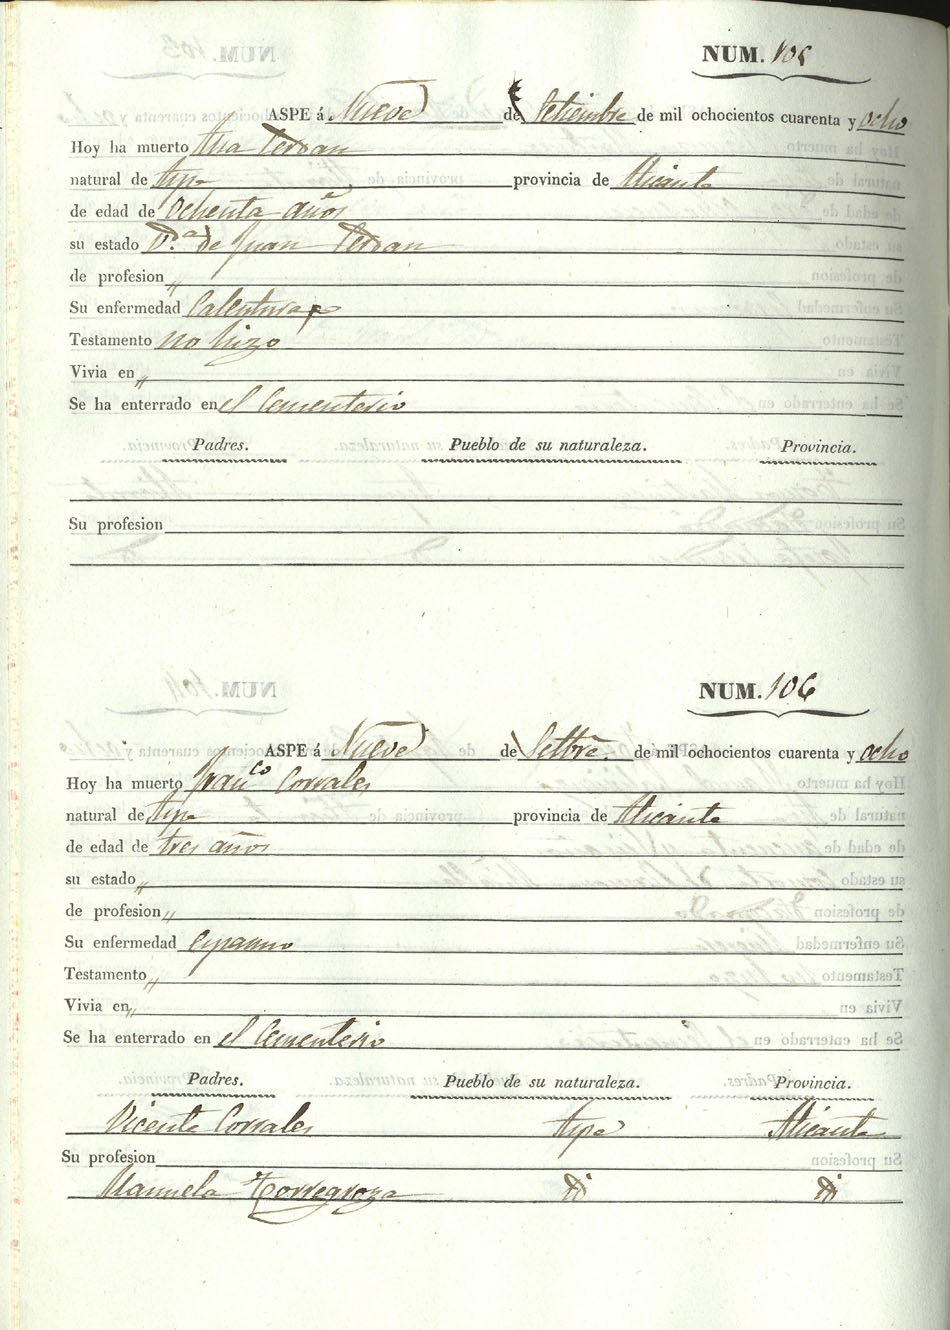 NUM. 105
ASPE á Nueve de Setiembre de mil ochocientos cuarenta y ocho
Hoy ha muerto Ana
natural de Aspe provincia de Alicante
de edad de ochenta años
su estado V.ª de Juan
de profesion "
Su enfermedad Calentura
Testamento no hizo
Vivia en "
Se ha enterrado en el Cementerio
Padres. Pueblo de su naturaleza. Provincia.
Su profesion
NUM. 106
ASPE á Nueve de Settbre. de mil ochocientos cuarenta y ocho
Hoy ha muerto Franco Corrales
natural de Aspe provincia de Alicante
de edad de tres años
su estado "
de profesion "
Su enfermedad
Testamento "
Vivia en "
Se ha enterrado en el Cementerio
Padres. Pueblo de su naturaleza. Provincia.
Vicente Corrales Aspe Alicante
Su profesion
Manuela Torregroza